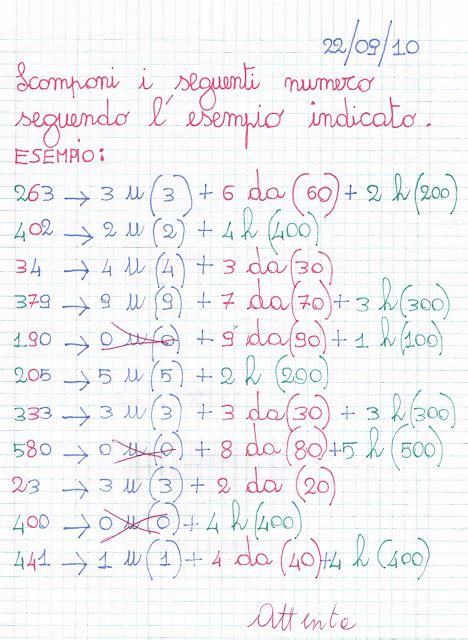 22/09/10
Scomponi i seguenti numero
seguendo l'esempio indicato.
ESEMPIO:
263 → 3 u (3) + 6 da (60) + 2 h (200)
402 → 2 u (2) + 4 h (400)
34 → 4 u (4) + 3 da (30)
379 → 9 u (9) + 7 da (70) + 3 h (300)
190 → 0 u (0) + 9 da (90) + 1 h (100)
205 → 5 u (5) + 2 h (200)
333 → 3 u (3) + 3 da (30) + 3 h (300)
580 → 0 u (0) + 8 da (80) + 5 h (500)
23 → 3 u (3) + 2 da (20)
400 → 0 u (0) + 4 h (400)
441 → 1 u (1) + 4 da (40) + 4 h (400)
Attente